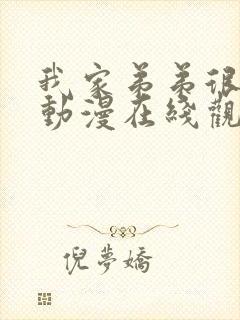 我家弟弟很
動漫在綫觀
倪夢嬌